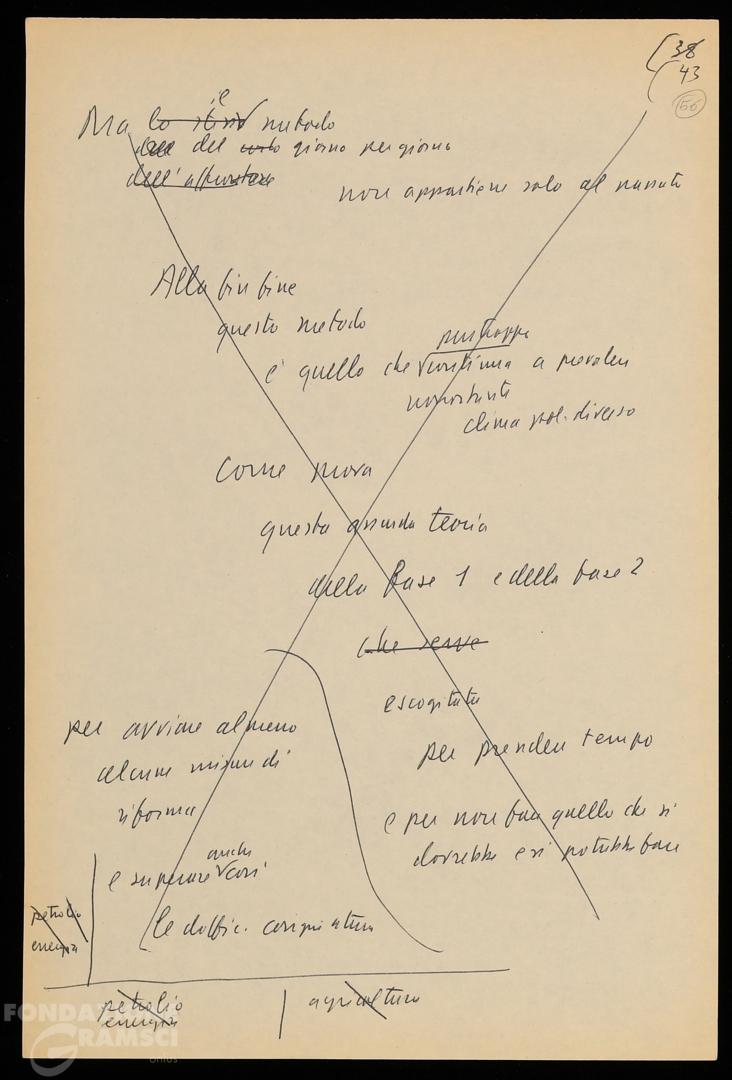 38
43
56
Ma lo stesso il metodo
del giorno per giorno
dell'affrontare
non appartiene solo al passato
Alla fin fine
questo metodo
purtroppo
è quello che continua a prevalere
nonostante
clima pol. diverso
Come prova
questa assurda teoria
della base 1 e della base 2
che serve
escogitata
per prendere tempo
e per non fare quello che si
dovrebbe e si potrebbe fare
per avviare almeno
alcune misure di
riforma
anche
e superare così
le diffic. congiuntura
petrolio
energia
petrolio
energia
agricoltura
FONDAZIONE
GRAMSCI
onlus